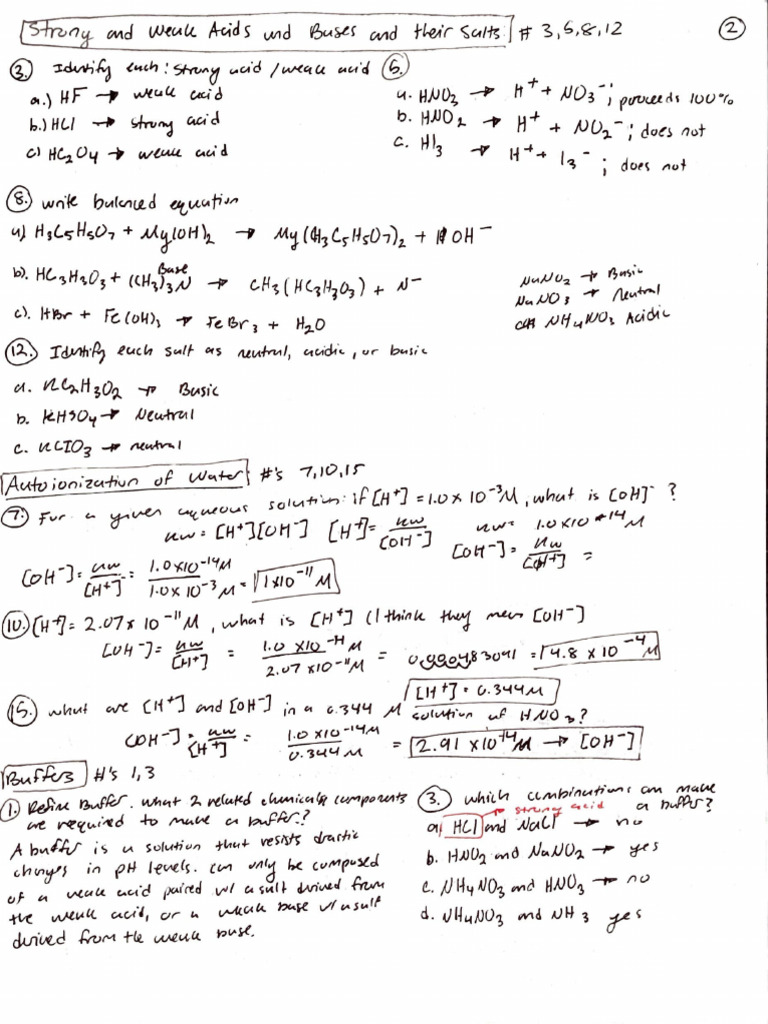 Strong and Weak Acids and Bases and their Salts # 3,5,8,12 ②
③. Identify each: strong acid / weak acid
a.) HF → weak acid
b.) HCl → strong acid
c) HC2O4 → weak acid
⑤.
a. HNO3 → H+ + NO3-; proceeds 100%
b. HNO2 → H+ + NO2-; does not
c. HI3 → H+ + I3-; does not
⑧. write balanced equation
a) H3C5H5O7 + Mg(OH)2 → Mg(H3C5H5O7)2 + HOH-
b). HC3H3O3 + (CH3)3N → CH3(HC3H3O3) + N-
Base
c). HBr + Fe(OH)3 → FeBr3 + H2O
NaNO2 → Basic
NaNO3 → Neutral
NH4NO3 Acidic
⑫. Identify each salt as neutral, acidic, or basic
a. KC2H3O2 → Basic
b. KHSO4 → Neutral
c. KClO3 → neutral
Autoionization of Water #'s 7,10,15
⑦. For a given aqueous solution: if [H+] = 1.0 x 10-3 M, what is [OH]- ?
Kw = [H+][OH-] [H+] = Kw/[OH-] Kw = 1.0 x 10-14 M
[OH-] = Kw/[H+] =
[OH-] = Kw/[H+] = 1.0x10-14 M/1.0 x 10-3 M = 1x10-11 M
⑩. [H+] = 2.07 x 10-11 M, what is [H+] (I think they mean [OH-]
[OH-] = Kw/[H+] = 1.0 x10-14 M/2.07 x10-11 M = 0.000483091 = 4.8 x 10-4 M
[H+] = 0.344M
⑮. what are [H+] and [OH-] in a 0.344 M solution of HNO3?
[OH-] = Kw/[H+] = 1.0 x10-14 M/0.344 M = 2.91 x10-14 M → [OH-]
Buffers #'s 1,3
①. Define Buffer. What 2 related chemicals components
are required to make a buffer?
A buffer is a solution that resists drastic
changes in pH levels. can only be composed
of a weak acid paired w/ a salt derived from
the weak acid, or a weak base w/ a salt
derived from the weak base.
③. which combinations can make
a buffer?
strong acid
a. HCl and NaCl → no
b. HNO2 and NaNO2 → yes
c. NH4NO3 and HNO3 → no
d. NH4NO3 and NH3 yes